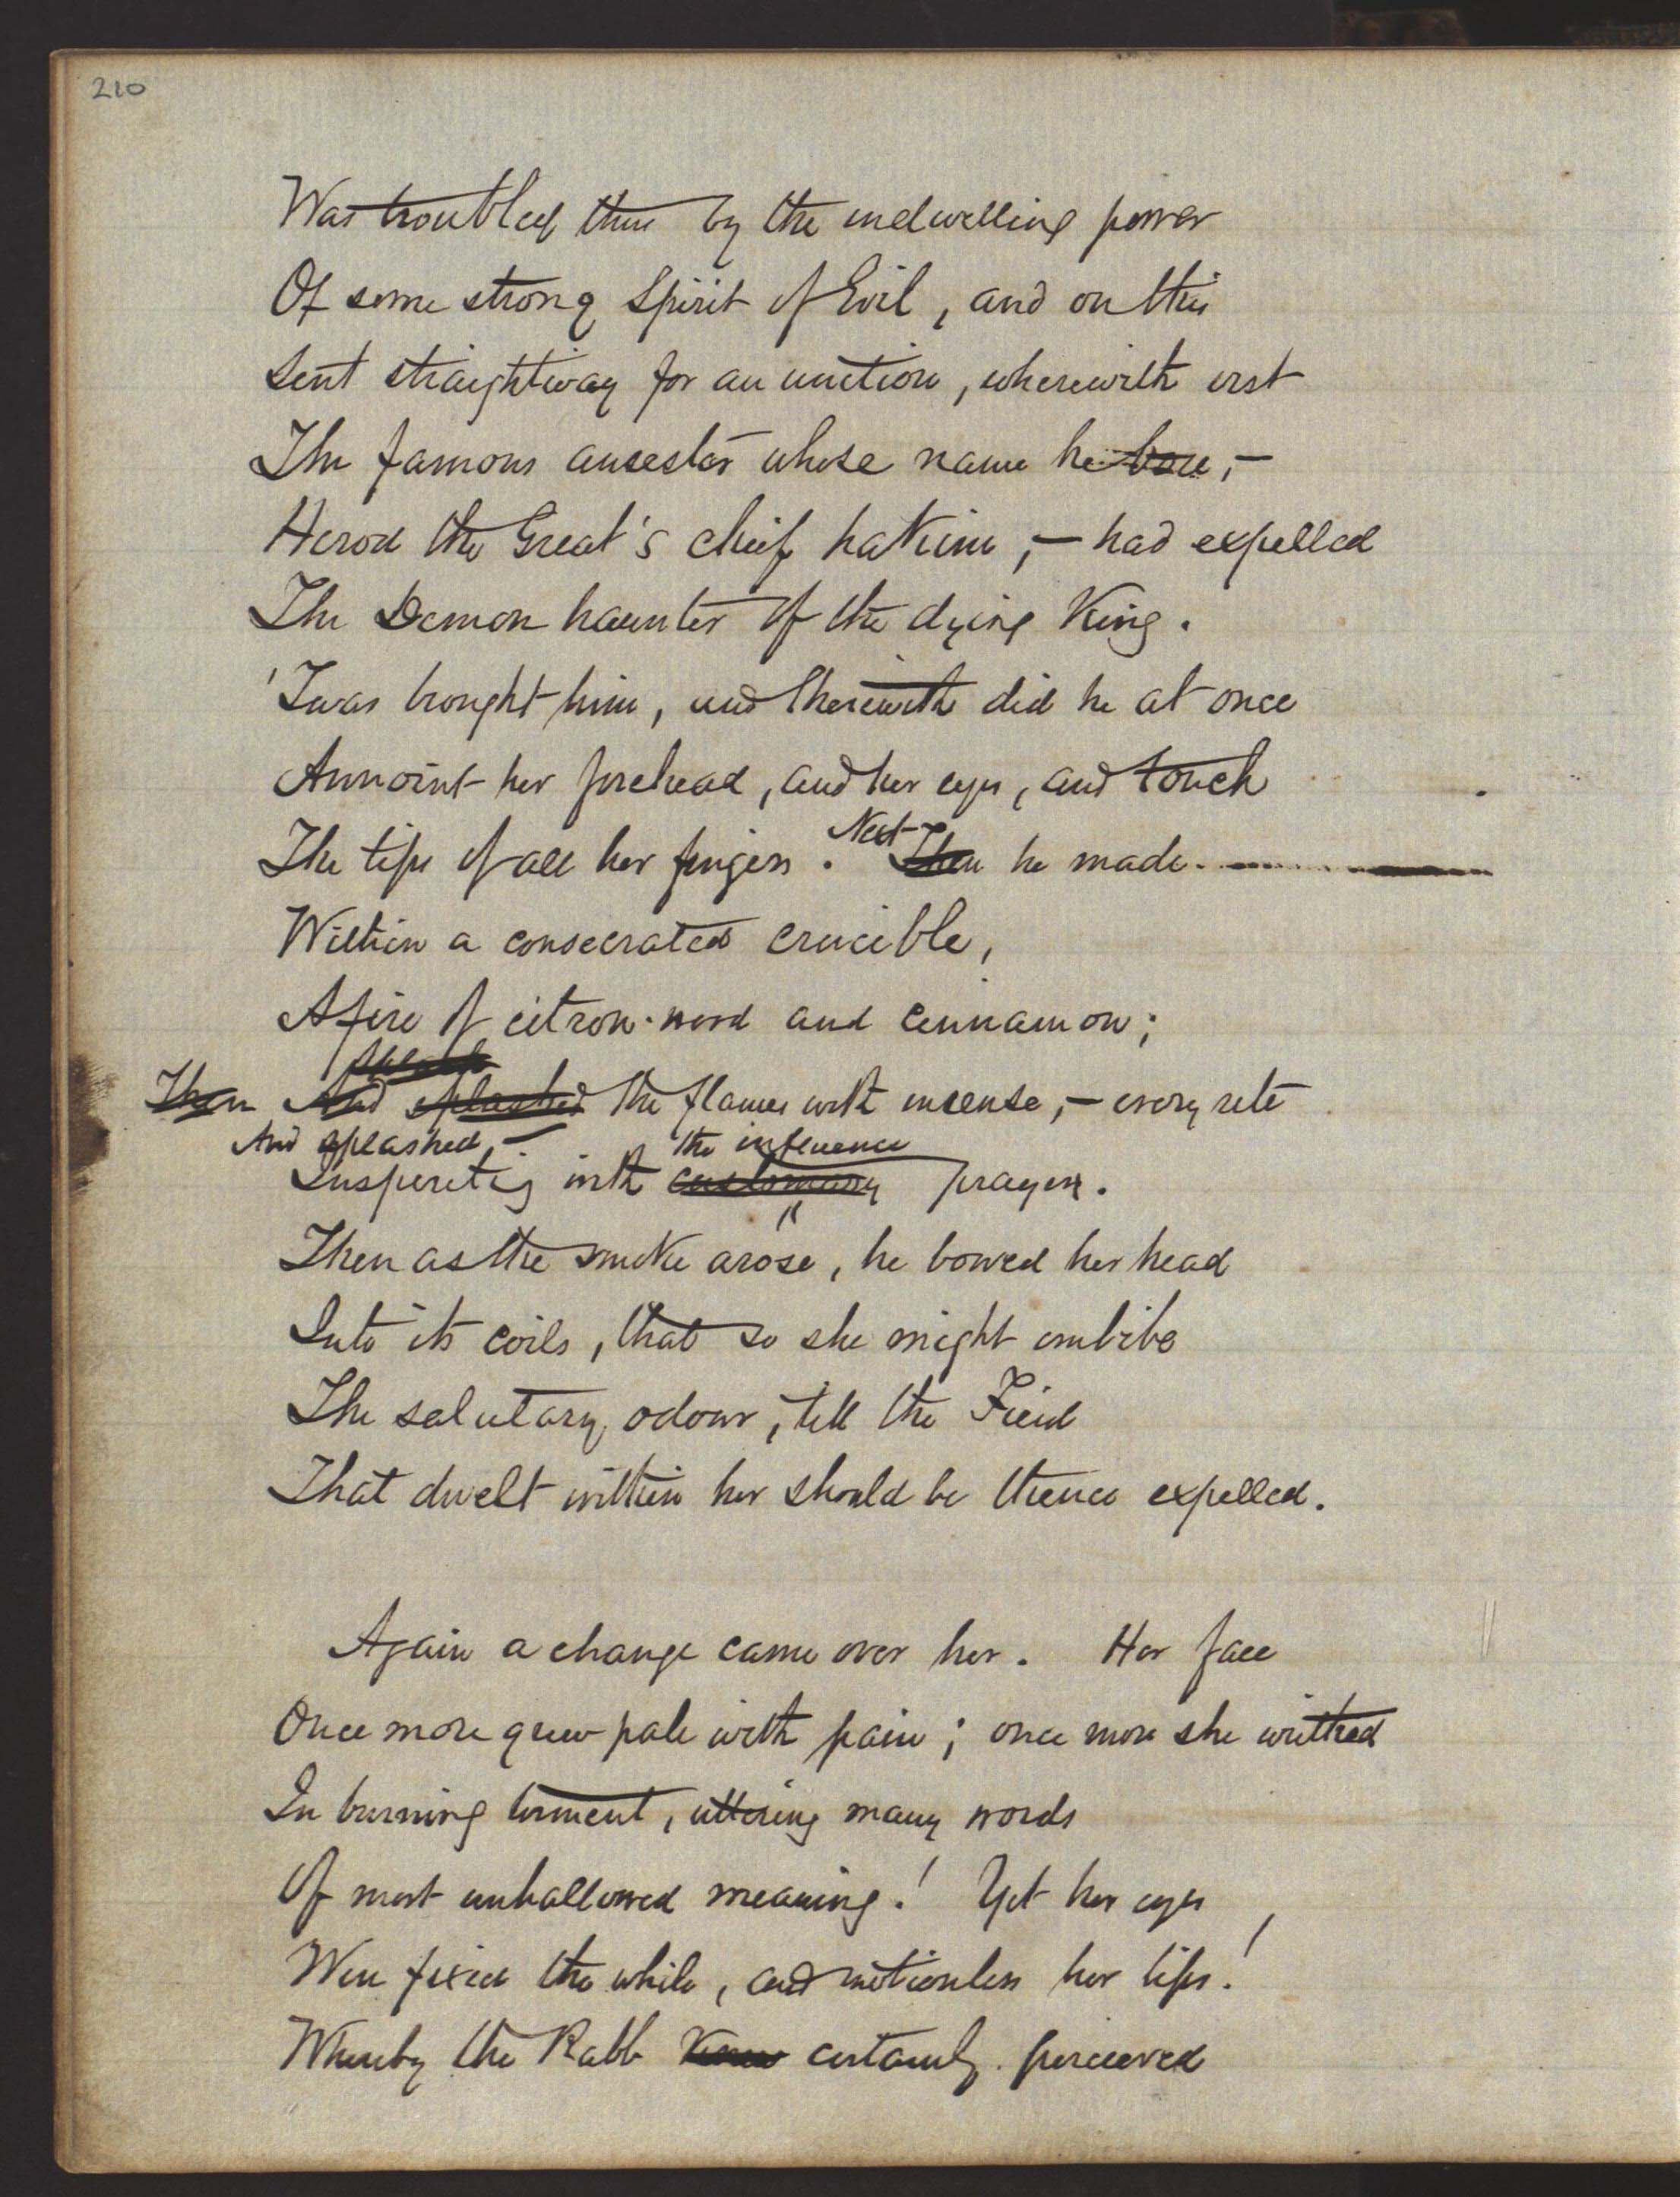 210
Was troubled thus by the indwelling power
Of some strong Spirit of Evil, and on this
Sent straightway for an unction, wherewith erst
The famous ancestor whose name he bore,–
Herod the Great's chief hakim,– had expelled
The Demon haunter of the dying King.
'Twas brought him, and therewith did he at once
Annoint her forehead, and her eyes, and touch
Next
The tips of all her fingers. Then he made
Within a consecrated crucible,
A fire of citron-wood and cinnamon;
Then And splashed the flames with incense,– every rite
And splashed the influence
Inspiriting with customary prayers.
Then as the smoke arose, he bowed her head
Into its coils, that so she might imbibe
The salutary odour, till the Fiend
That dwelt within her should be thence expelled.
Again a change came over her. Her face
Once more grew pale with pain; once more she writhed
In burning torment, uttering many words
Of most unhallowed meaning! Yet her eyes
Were fixed the while, and motionless her lips!
Whereby the Rabb knew certainly perceived